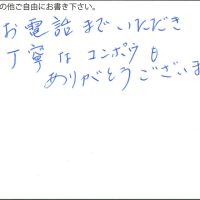 の他ご自由にお書き下さい。
お電話までいただき
丁寧なコンポウも
ありがとうございま